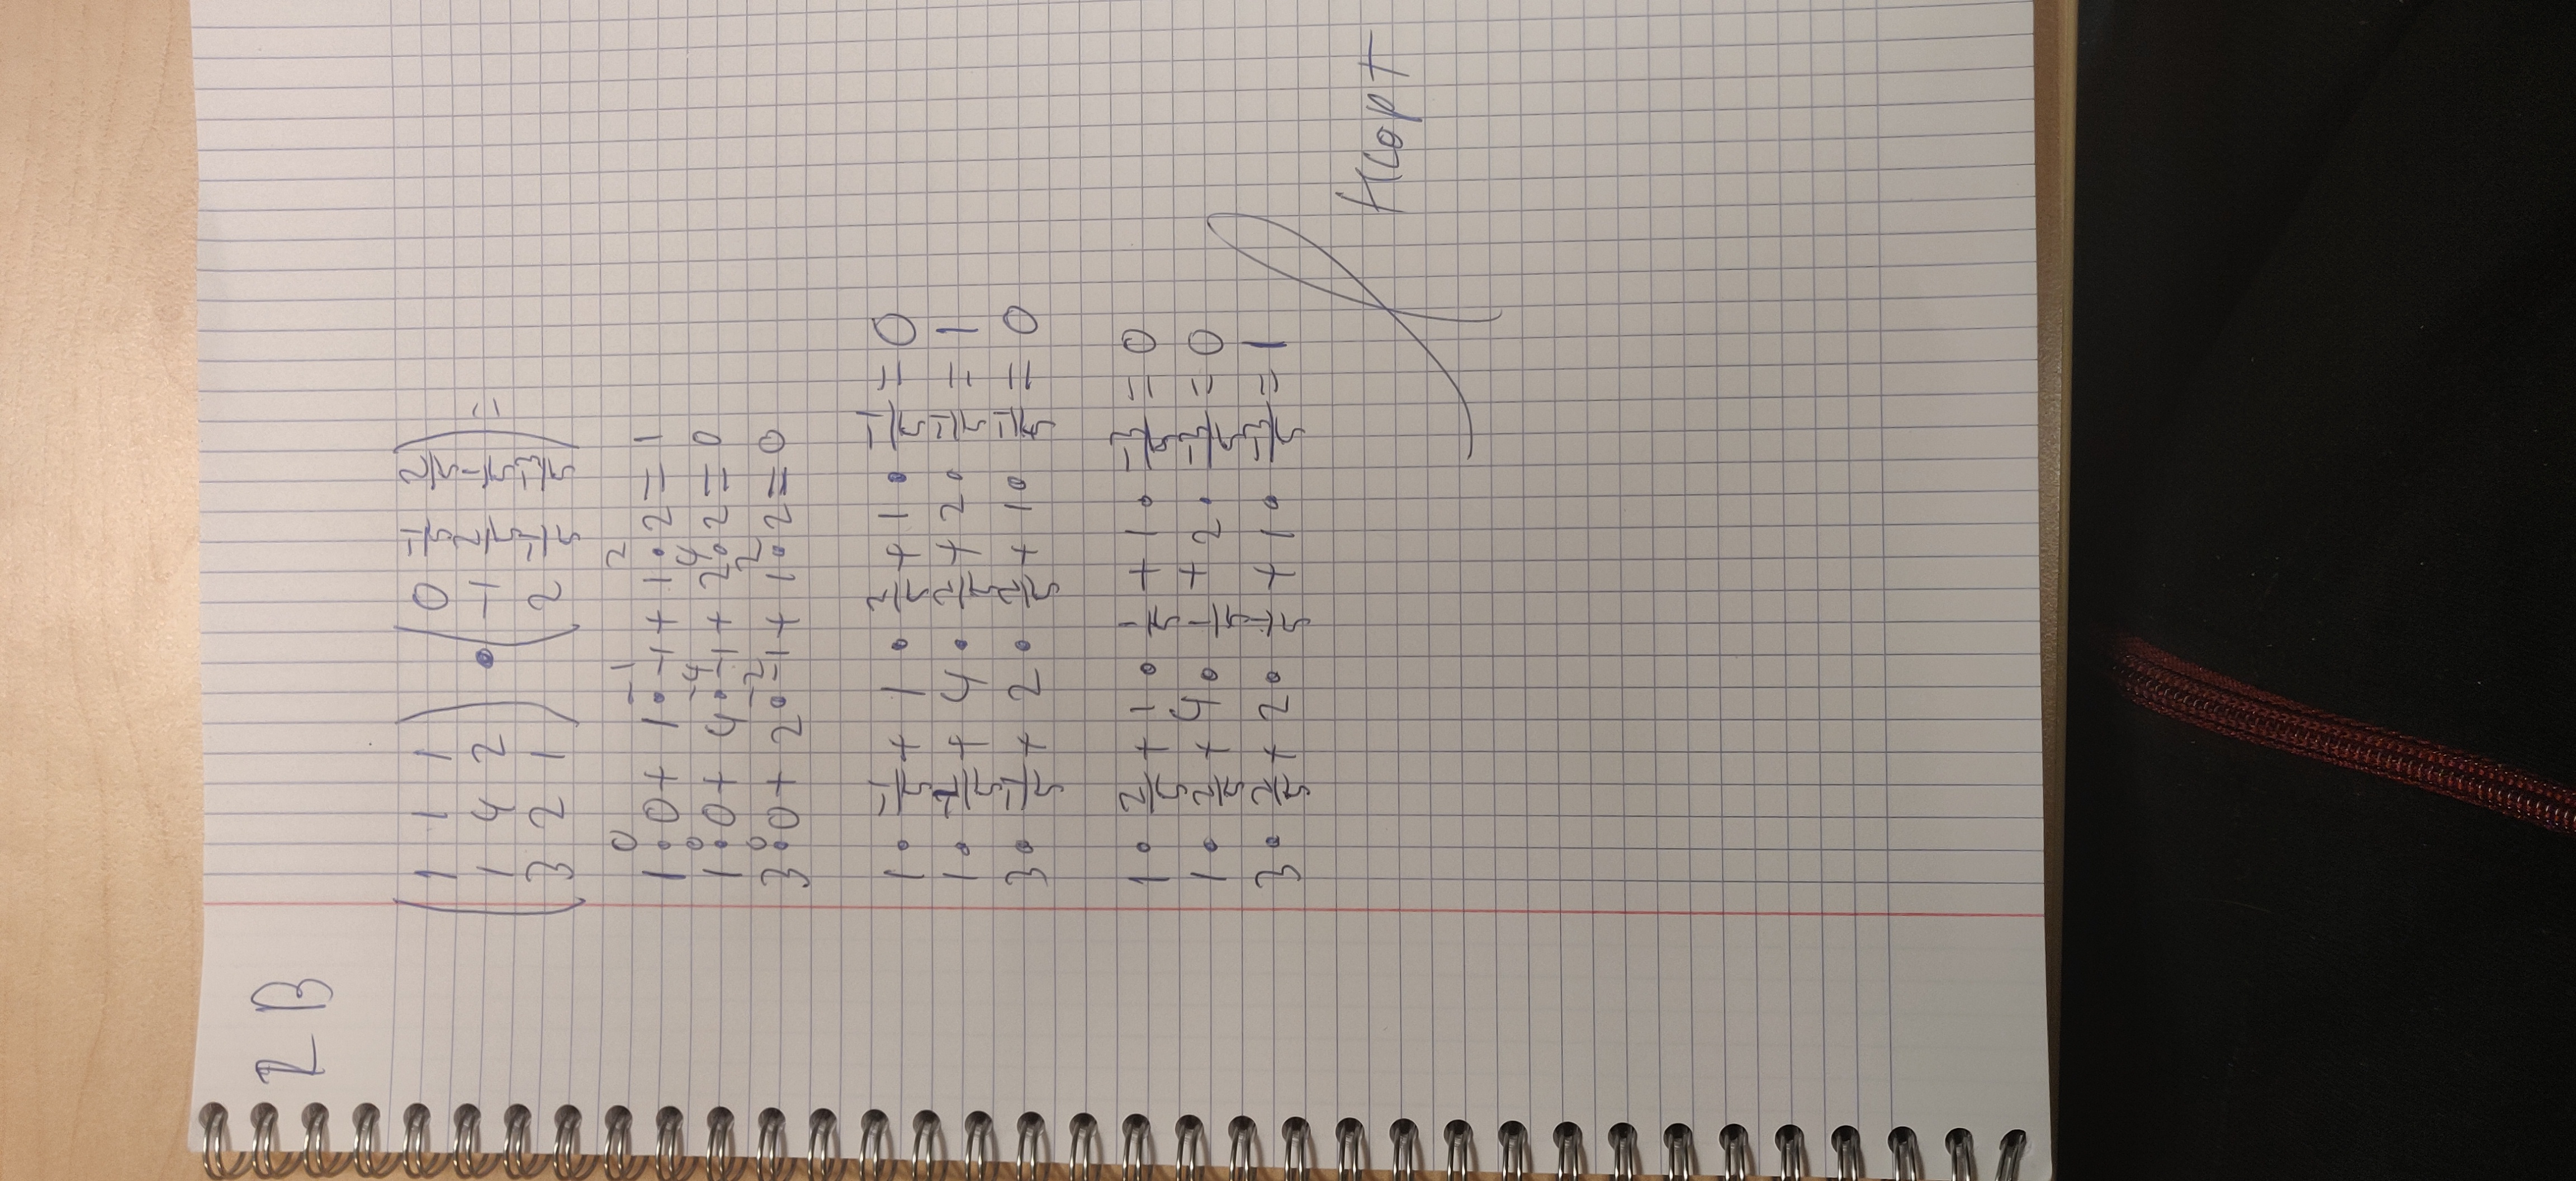 2B
( 1 1 1 ) ( 0 -1/5 2/5 )
( 1 4 2 ) • ( -1 2/5 1/5 ) =
( 3 2 1 ) ( 2 -1/5 -3/5 )
0 -1 2
1•0+ 1•-1+ 1•2=1
0 -4 4
1•0+ 4•-1+ 2•2=0
0 -2 2
3•0+ 2•-1+ 1•2=0
1•-1/5+ 1•2/5+ 1•-1/5=0
1•-1/5+ 4•2/5+ 2•-1/5=1
3•-1/5+ 2•2/5+ 1•-1/5=0
1•2/5+ 1•1/5+ 1•-3/5=0
1•2/5+ 4•1/5+ 2•-3/5=0
3•2/5+ 2•1/5+ 1•-3/5=1
Klopt